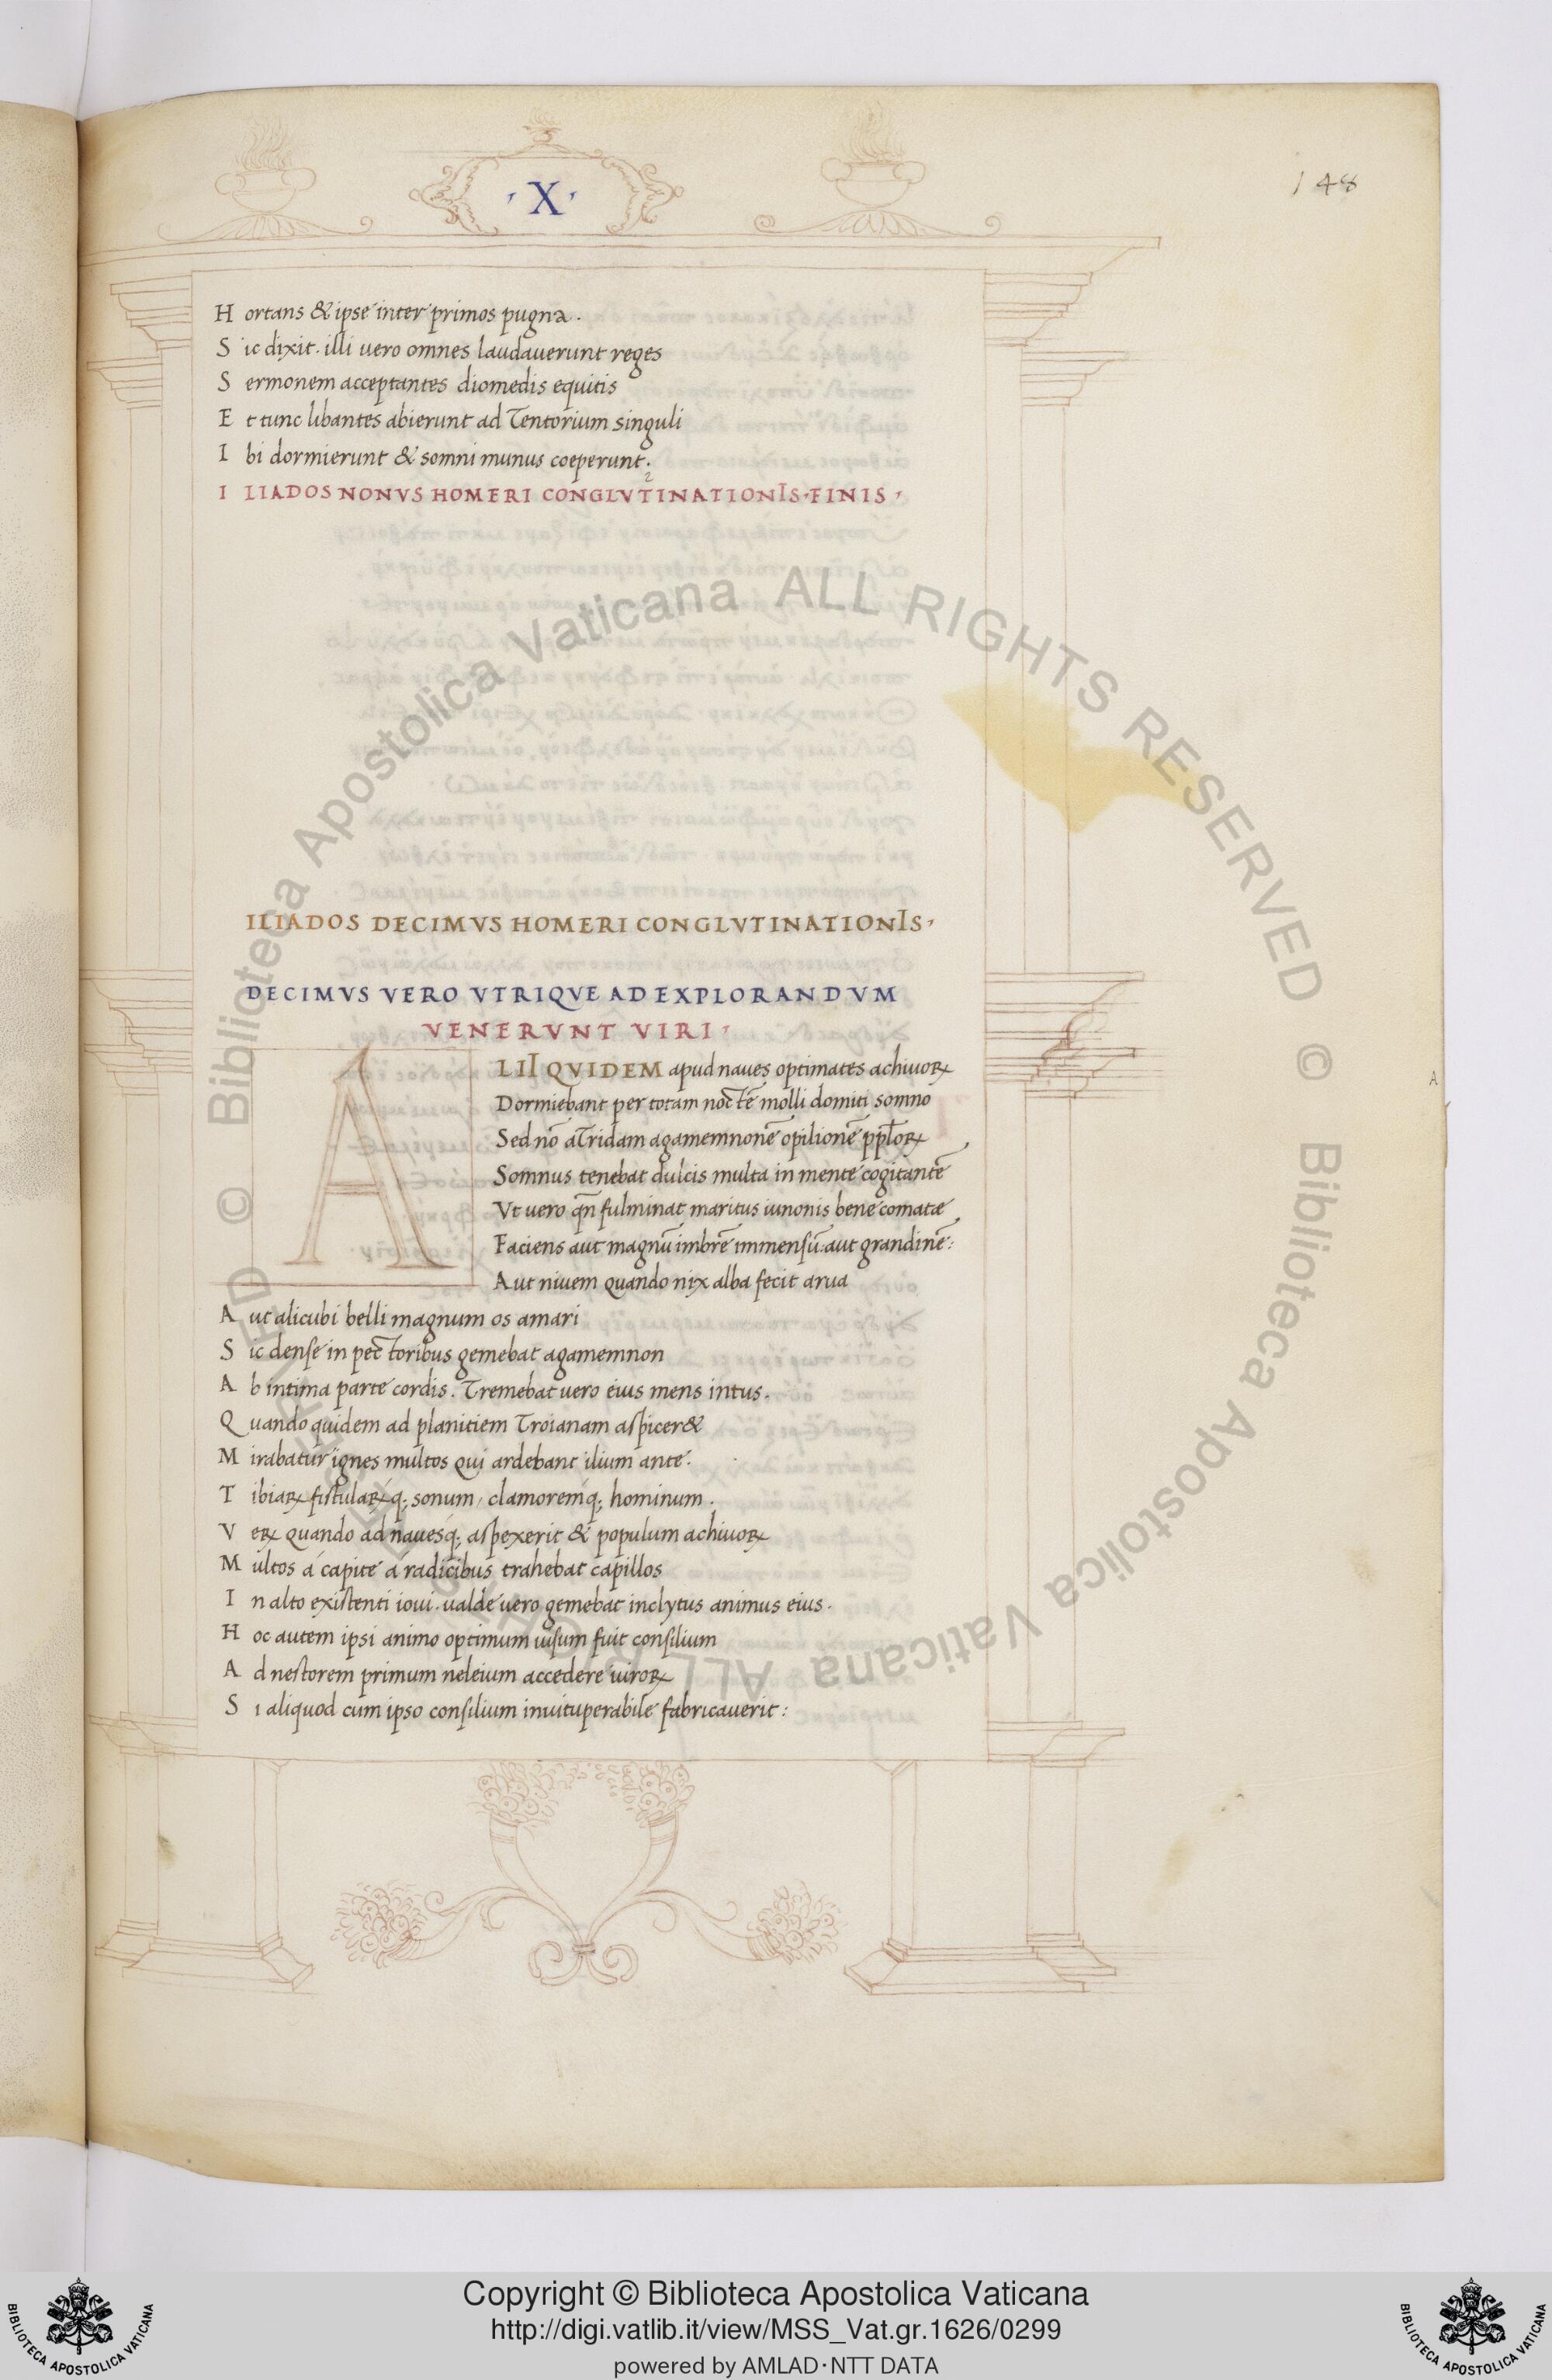 · X ·
148
Hortans & ipse inter primos pugna .
Sic dixit . illi uero omnes laudauerunt reges
Sermonem acceptantes diomedis equitis
Et tunc libantes abierunt ad Tentorium singuli
Ibi dormierunt & somni munus coeperunt .
ILIADOS NONVS HOMERI CONGLVTINATIONIS · FINIS ·
ILIADOS DECIMVS HOMERI CONGLVTINATIONIS ·
DECIMVS VERO VTRIQVE AD EXPLORANDVM
VENERVNT VIRI ·
ALII QVIDEM apud naues optimates achiuoꝝ
Dormiebant per totam noctē molli domiti somno
Sed nō aTridam agamemnonē opilionē pplꝝ
Somnus tenebat dulcis multa in mente cogitantē
Vt uero qn̄ fulminat maritus iunonis bene comatæ
Faciens aut magnū imbrē immensū : aut grandinē :
Aut niuem quando nix alba fecit arua
Aut alicubi belli magnum os amari
Sic dense in pectoribus gemebat agamemnon
Ab intima parte cordis . Tremebat uero eius mens intus .
Quando quidem ad planitiem Troianam aspicer&
Mirabatur ignes multos qui ardebant ilium ante .
Tibiaꝝ fistulaꝝq; sonum , clamoremq; hominum .
Veꝝ quando ad nauesq; aspexerit & populum achiuoꝝ
Multos á capite á radicibus trahebat capillos
In alto existenti ioui . ualde uero gemebat inclytus animus eius .
Hoc autem ipsi animo optimum uisum fuit consilium
Ad nestorem primum neleium accedere uiroꝝ
Si aliquod cum ipso consilium inuituperabile fabricauerit :
A
© Biblioteca Apostolica Vaticana ALL RIGHTS RESERVED
© Biblioteca Apostolica Vaticana ALL RIGHTS RESERVED
Copyright © Biblioteca Apostolica Vaticana
http://digi.vatlib.it/view/MSS_Vat.gr.1626/0299
powered by AMLAD·NTT DATA
BIBLIOTECA APOSTOLICA VATICANA
BIBLIOTECA APOSTOLICA VATICANA